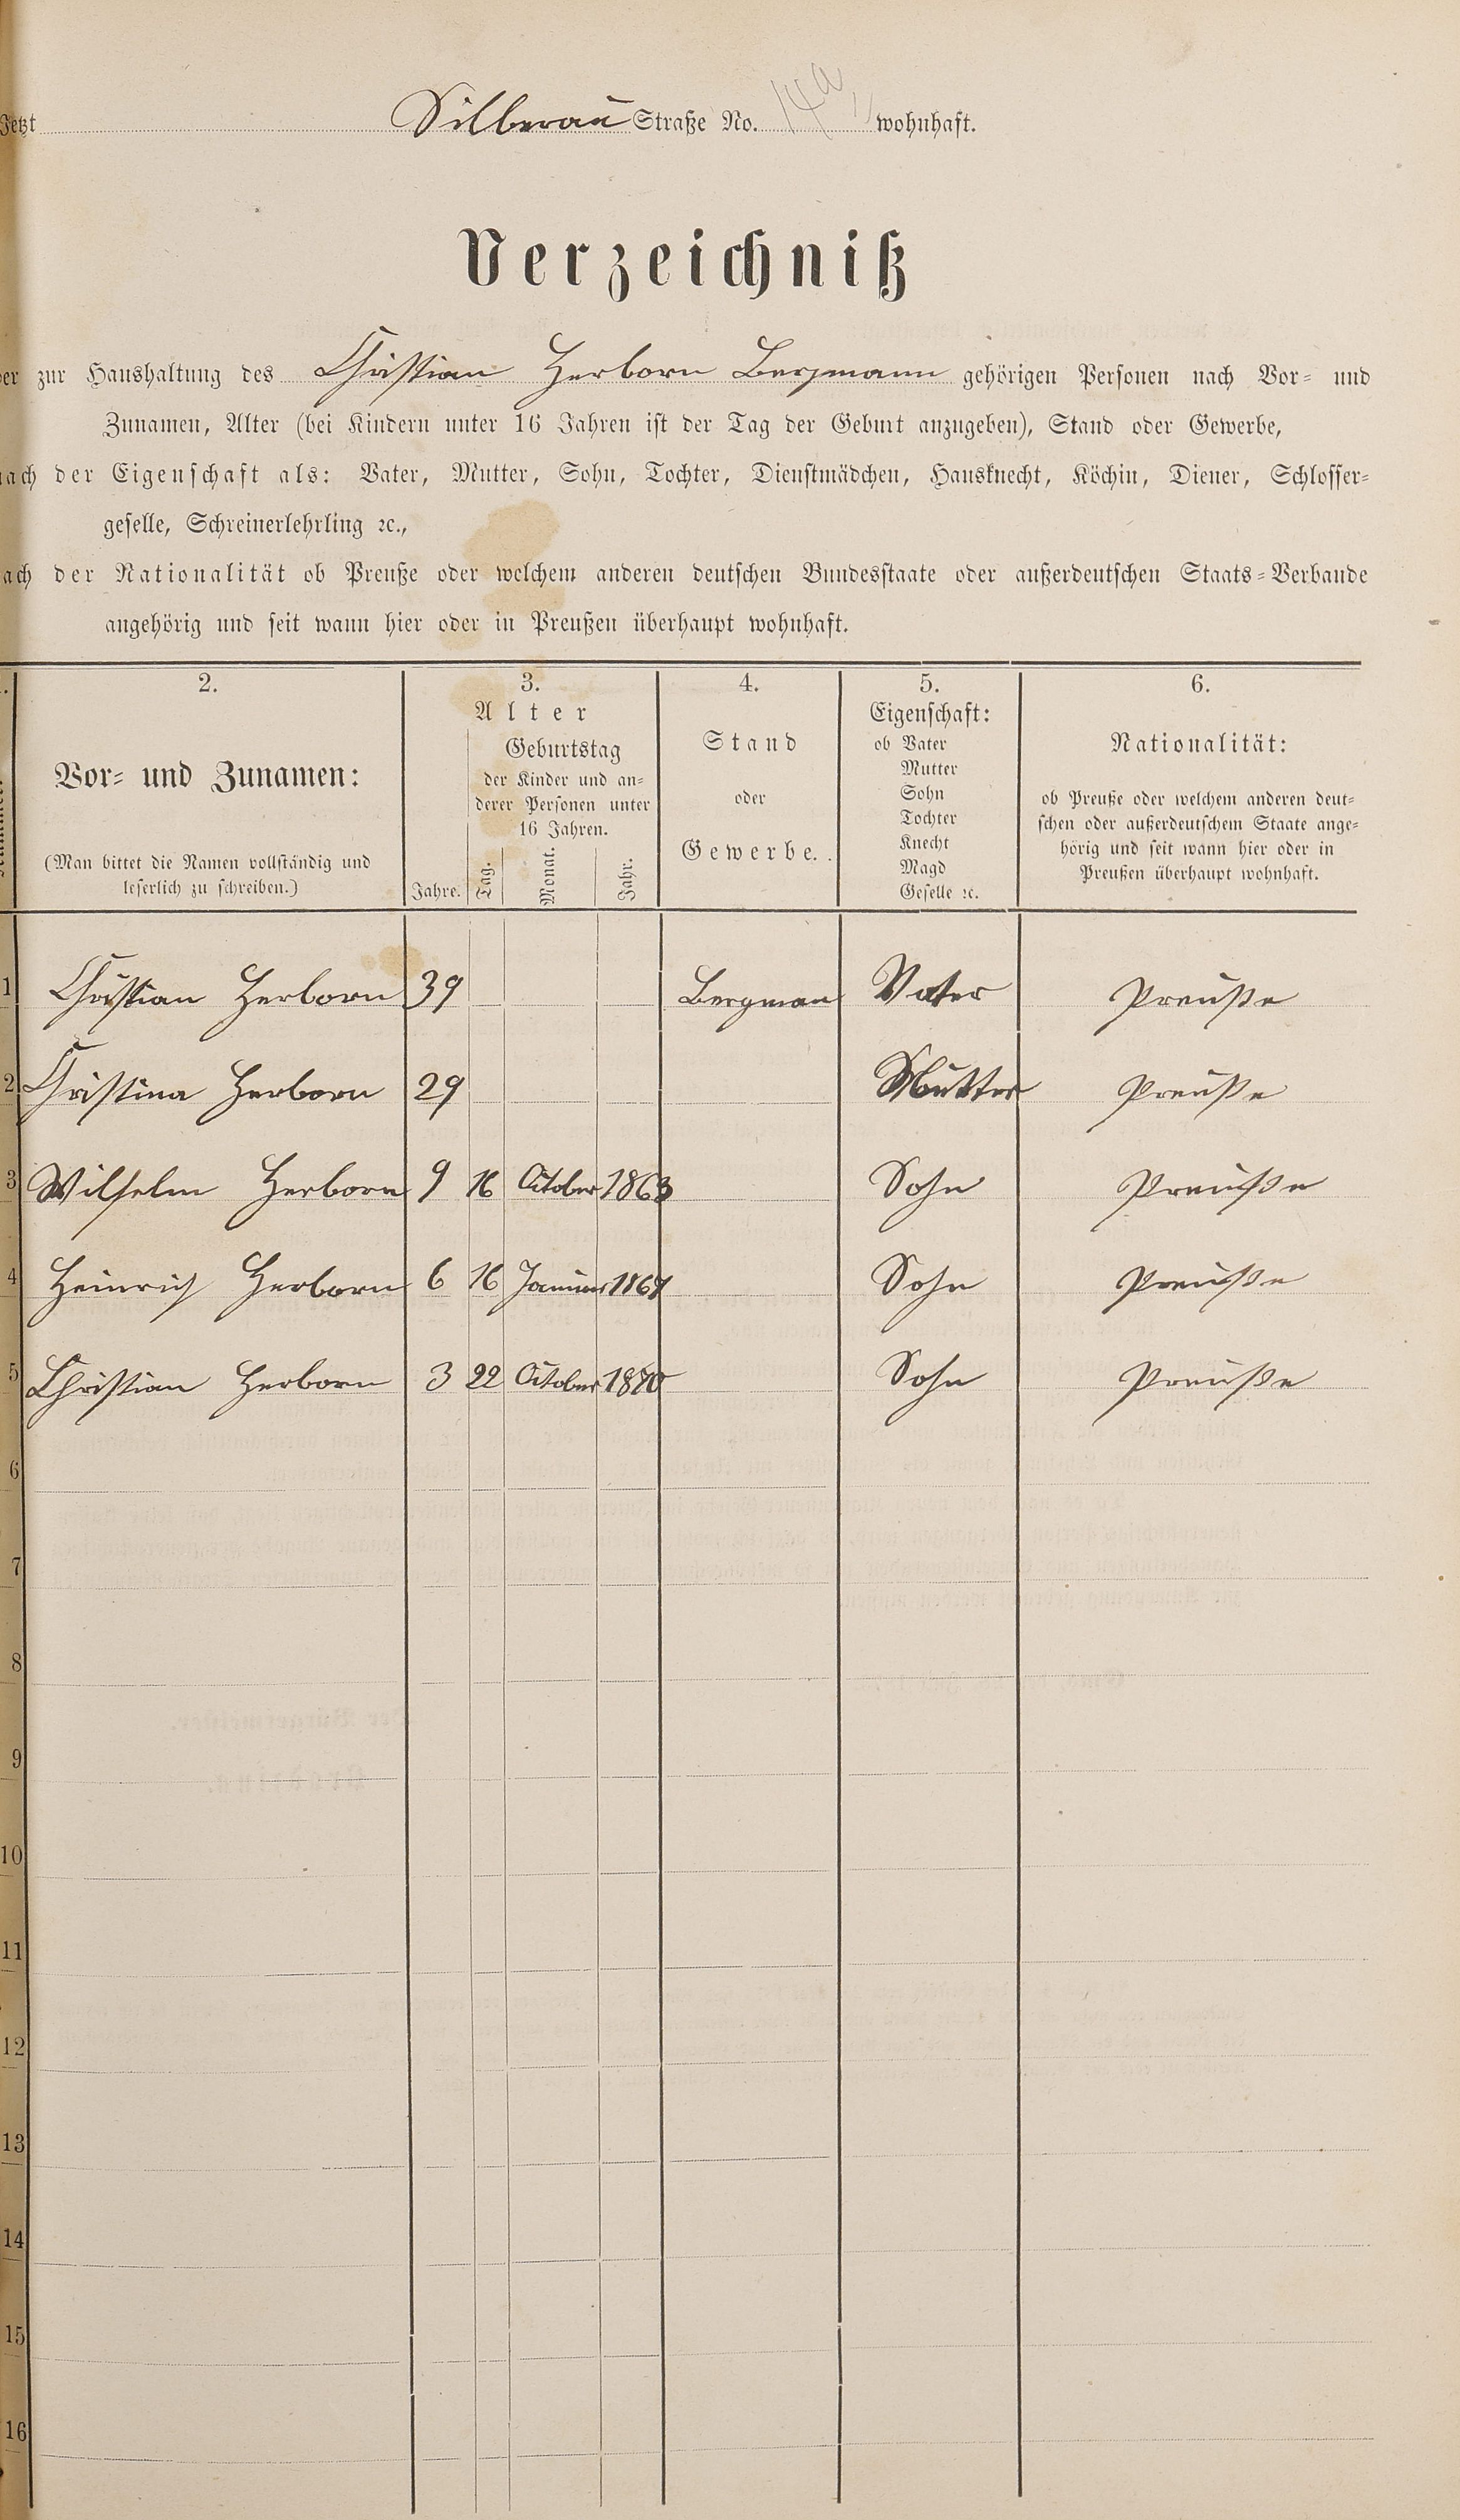 Jetzt Silberau Straße No. 14a wohnhaft.
Verzeichniß
der zur Haushaltung des Christian Herborn Bergmann gehörigen Personen nach Vor- und
Zunamen, Alter (bei Kindern unter 16 Jahren ist der Tag der Geburt anzugeben), Stand oder Gewerbe,
nach der Eigenschaft als: Vater, Mutter, Sohn, Tochter, Dienstmädchen, Hausknecht, Köchin, Diener, Schlosser-
geselle, Schreinerlehrling ꝛc.,
nach der Nationalität ob Preuße oder welchem anderen deutschen Bundesstaate oder außerdeutschen Staats-Verbande
angehörig und seit wann hier oder in Preußen überhaupt wohnhaft.
2.
Vor- und Zunamen:
(Man bittet die Namen vollständig und
leserlich zu schreiben.)
3.
Alter
Jahre.
Geburtstag
der Kinder und an-
derer Personen unter
16 Jahren.
Tag.
Monat.
Jahr.
4.
Stand
oder
Gewerbe.
5.
Eigenschaft:
ob Vater
Mutter
Sohn
Tochter
Knecht
Magd
Geselle ꝛc.
6.
Nationalität:
ob Preuße oder welchem anderen deut-
schen oder außerdeutschem Staate ange-
hörig und seit wann hier oder in
Preußen überhaupt wohnhaft.
1 Christian Herborn 39 Bergman Vater Preuße
2 Christina Herborn 29 Mutter Preuße
3 Wilhelm Herborn 9 16 October 1863 Sohn Preuße
4 Heinrich Herborn 6 16 Januar 1867 Sohn Preuße
5 Christian Herborn 3 22 October 1870 Sohn Preuße
6
7
8
9
10
11
12
13
14
15
16